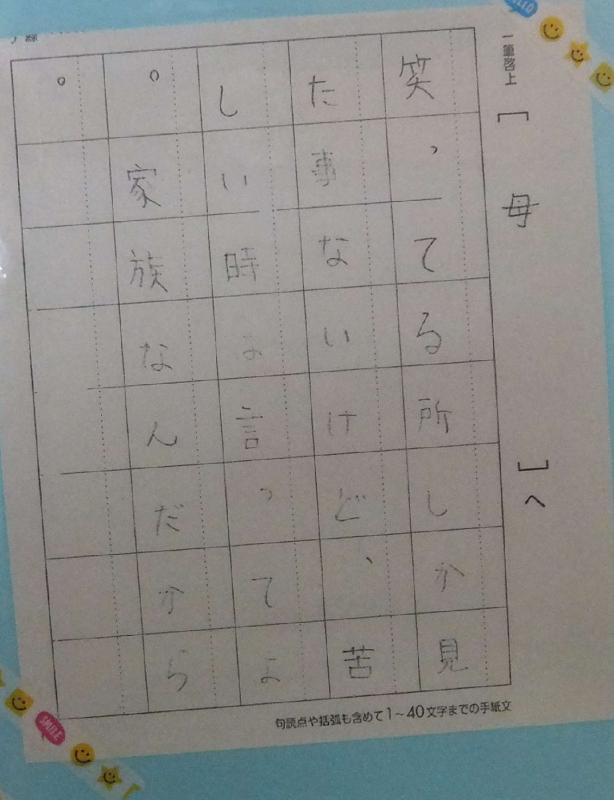 一筆啓上 [母]へ
笑ってる所しか見
た事ないけど、苦
しい時は言ってよ
。家族なんだから
。
句読点や括弧も含めて1～40文字までの手紙文
SMILE